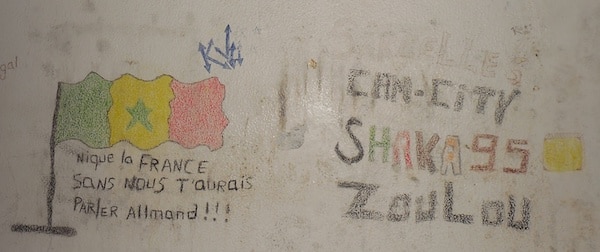 gal
Nique la FRANCE
SANS NOUS T'aURAIS
PARlER Allmand!!!
CAN-CiTY
SHAKA95
ZOULOU